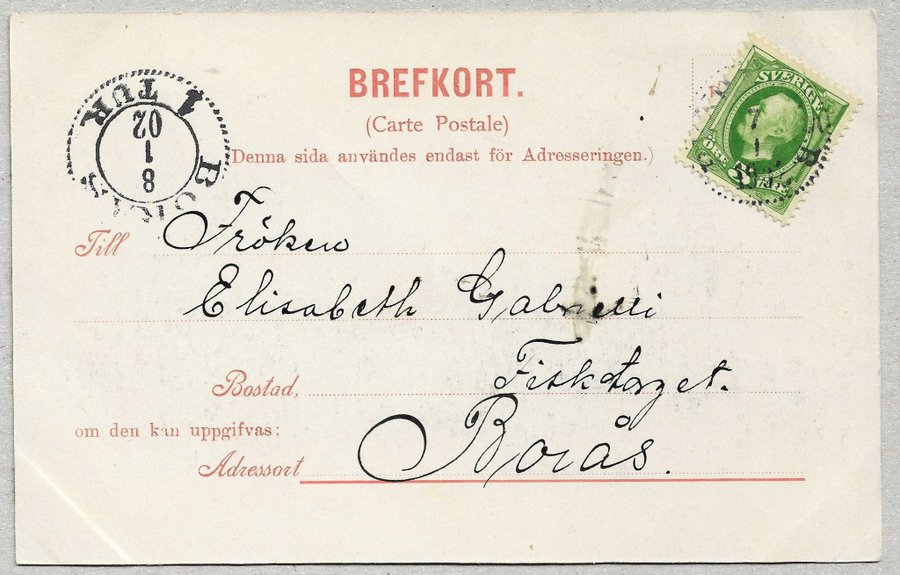 BREFKORT.
(Carte Postale)
(Denna sida användes endast för Adresseringen.)
BORÅS
1 TUR
8
1
02
SVERIGE
5 ÖRE
7
1
Till Fröken
Elisabeth Gabrielli
Bostad, Fisktorget.
om den kan uppgifvas:
Adressort Borås.